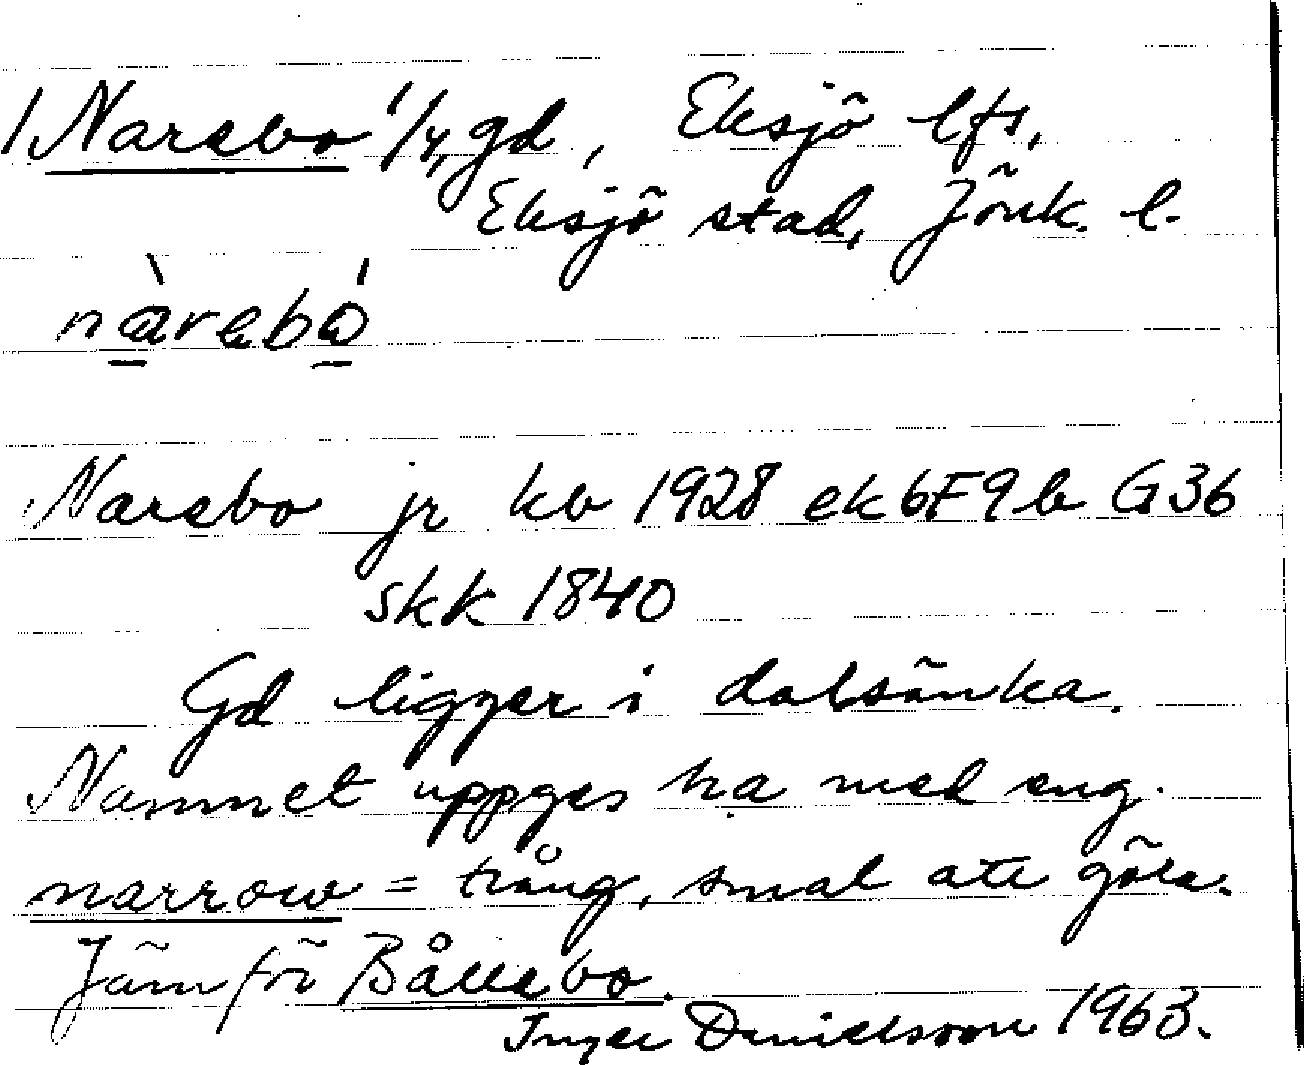 1 Narebo 1/4, gd, Eksjö lfs,
Eksjö stad, Jönk. l.
nàrebó
Narebo jr kb 1928 ek 6F9b G36
skk 1840
Gd ligger i dalsänka.
Namnet uppges ha med eng.
narrow = trång, smal att göra.
Jämför Bållebo.
Inger Danielsson 1963.